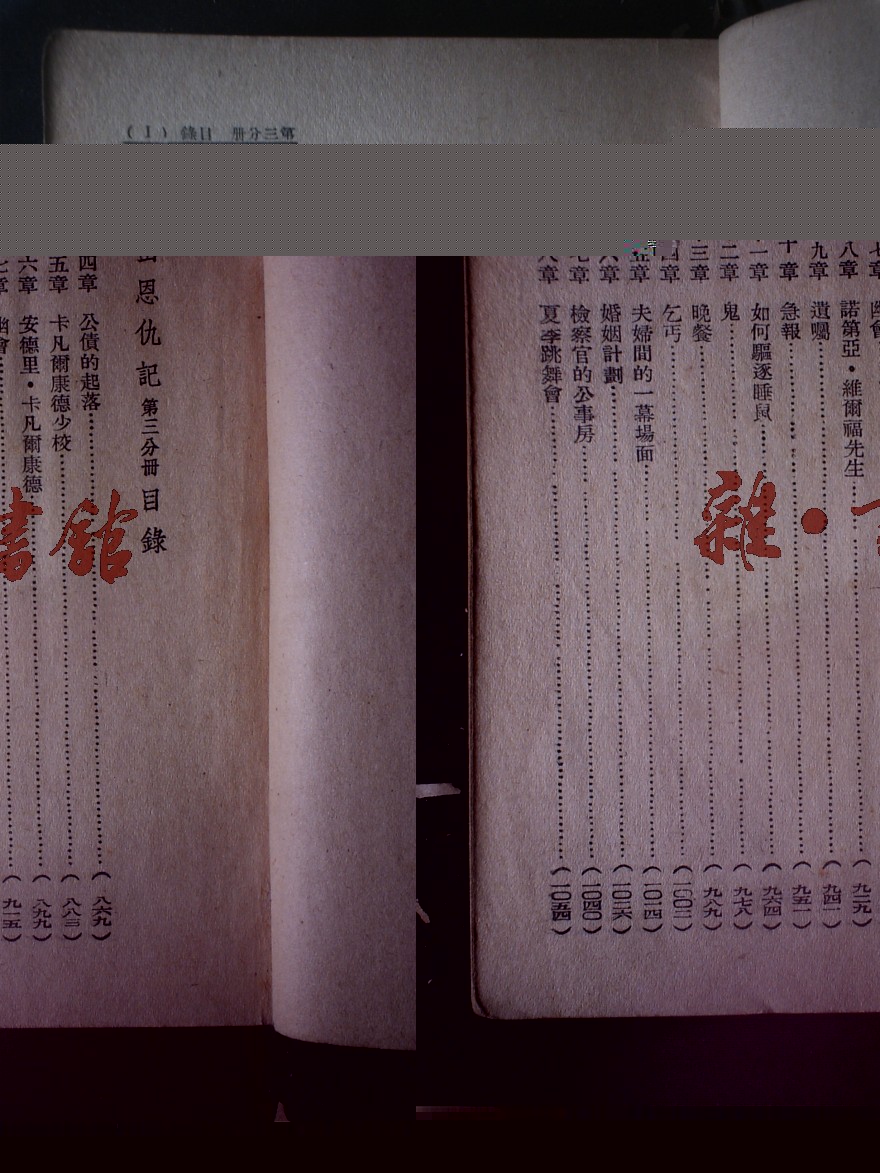 第三分冊 目錄 (1)
恩仇記 第三分冊 目錄
四章 公債的起落……(八六九)
五章 卡凡爾康德少校……(八八三)
六章 安德里·卡凡爾康德……(八九九)
章 會……(九一五)
八章 諾第亞·維爾福先生……(九二九)
九章 遺囑……(九四一)
十章 急報……(九五一)
一章 如何驅逐睡鼠……(九六四)
二章 鬼……(九七八)
三章 晚餐……(九八九)
四章 乞丐……(一〇〇二)
五章 夫婦間的一幕場面……(一〇一四)
六章 婚姻計劃……(一〇二六)
七章 檢察官的公事房……(一〇四〇)
八章 夏季跳舞會……(一〇五四)
書館
雜·